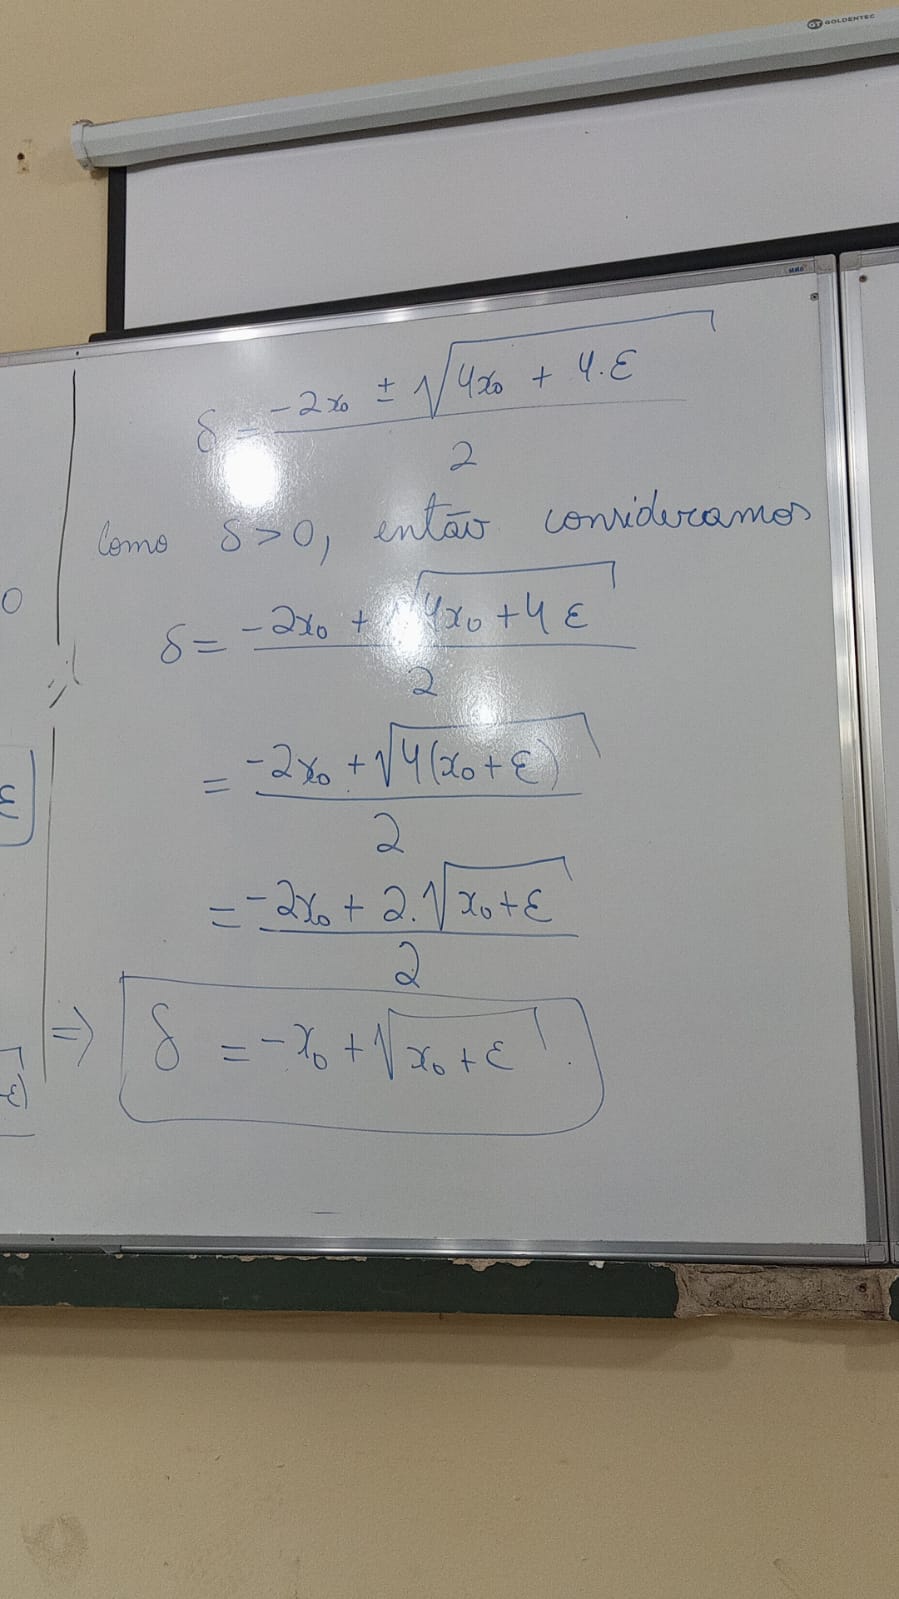 GT GOLDENTEC
δ = -2x₀ ± √(4x₀ + 4.ε) / 2
Como δ>0, então consideramos
δ = -2x₀ + √(4x₀ + 4ε) / 2
= -2x₀ + √(4(x₀ + ε)) / 2
= -2x₀ + 2.√(x₀ + ε) / 2
⇒ δ = -x₀ + √(x₀ + ε).